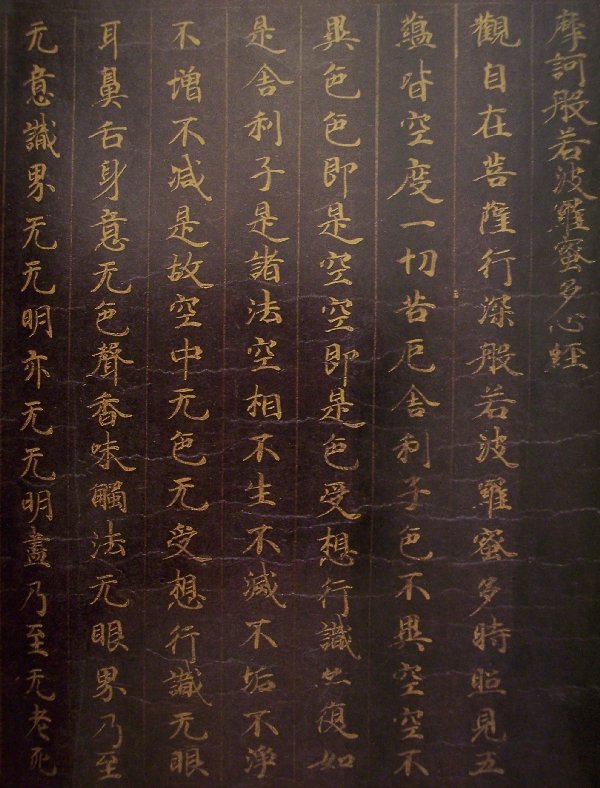 摩訶般若波羅蜜多心経
觀自在菩薩行深般若波羅蜜多時照見五
蘊皆空度一切苦厄舍利子色不異空空不
異色色即是空空即是色受想行識亦復如
是舍利子是諸法空相不生不滅不垢不淨
不增不减是故空中无色无受想行識无眼
耳鼻舌身意无色聲香味觸法无眼界乃至
无意識界无无明亦无无明盡乃至无老死